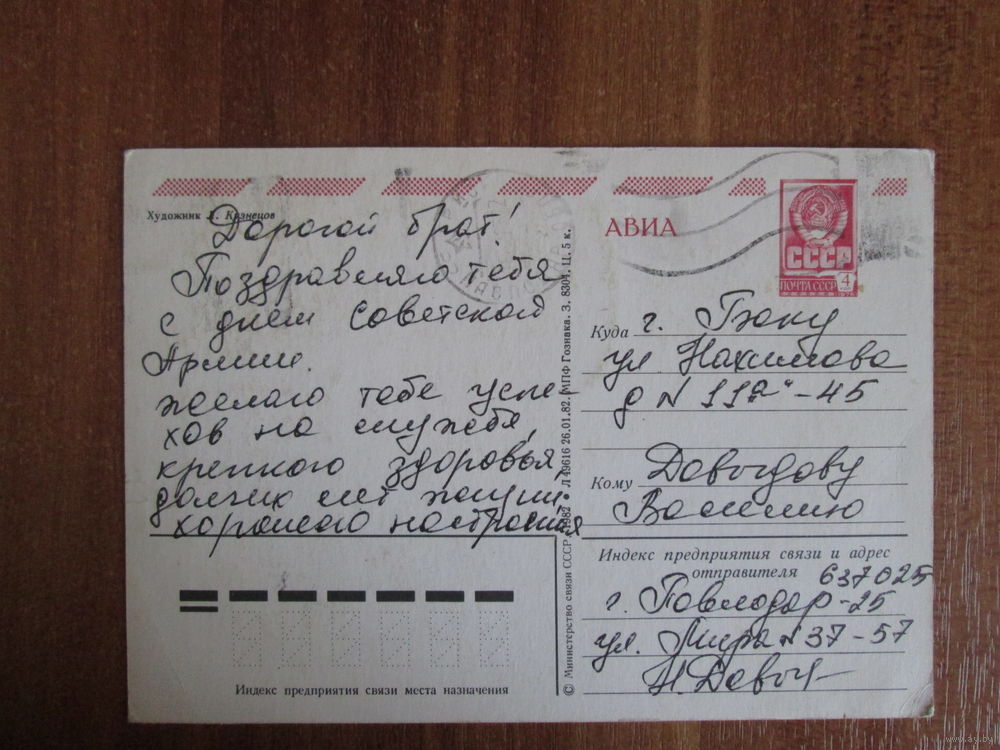 Художник Л. Кузнецов
Дорогой брат!
Поздравляю тебя
с днем Советской
Армии.
желаю тебе успе-
хов на службе,
крепкого здоровья,
долгих лет жизни,
хорошего настроения
АВИА
СССР
ПОЧТА СССР
4
Куда г. Баку
ул Нахимова
д N 117"а" - 45
Кому Давыдову
Василию
Индекс предприятия связи и адрес
отправителя 637025
г. Павлодар-25
ул. Мира N 37-57
Н. Давыд
Индекс предприятия связи места назначения
© Министерство связи СССР, 1982. Л 49616 26.01.82. МПФ Гознака. З. 8304. Ц. 5 к.
www.ay.by